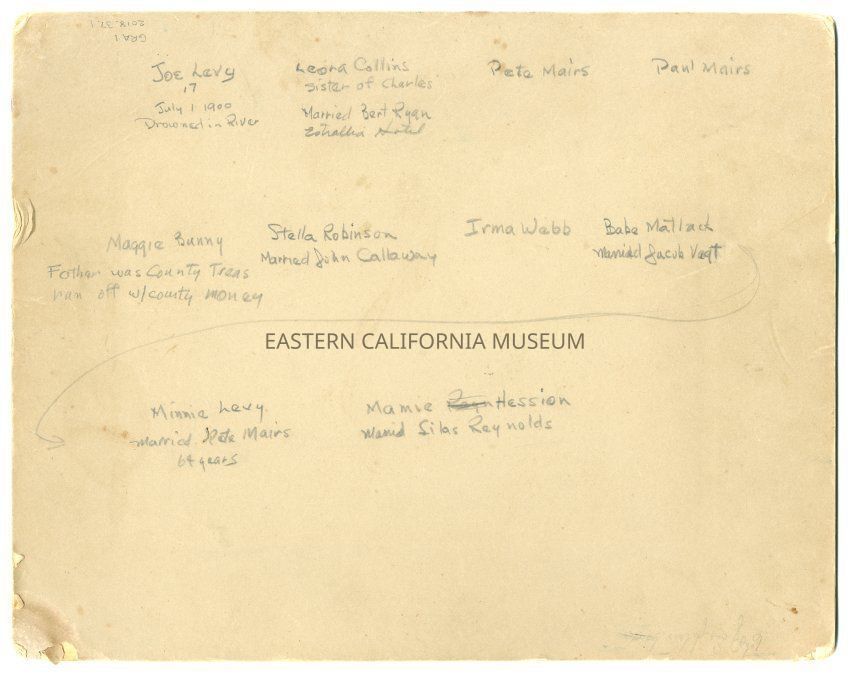 GRA 1
2018.37.1
Joe Levy
17
July 1 1900
Drowned in River
Leora Collins
Sister of Charles
Married Bert Ryan
Hotel
Pete Mairs
Paul Mairs
Maggie Bunny
Father was County Treas
ran off w/county money
Stella Robinson
Married John Callaway
Irma Webb
Babe Matlack
Married Jacob Vogt
EASTERN CALIFORNIA MUSEUM
Minnie Levy
Married Pete Mairs
64 years
Mamie Hession
Married Silas Reynolds